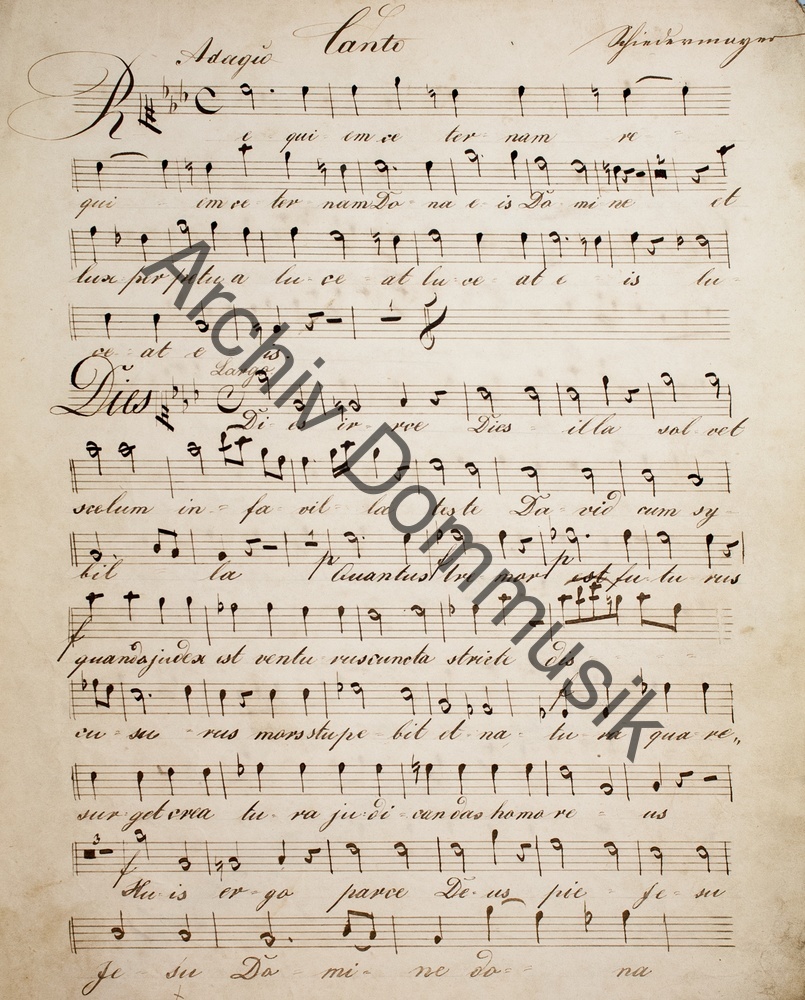 Adagio Canto Schiedermayer
R e - qui - em æ - ter - nam re - 
qui - em æ - ter - nam Do - na e - is Do - mi - ne et
lux perpetua lu - ce - at lu - ce - at e - is lu -
ce - at e - is.
Largo
Dies Di - es ir - ræ Dies - illa sol - vet
sæclum in - fa - vil - la teste Da - vid cum sy -
bil - la p Quantus tre mor p est fu - tu - rus
f quando judex est ventu - rus cuncta stricte dis -
cu - su - rus mors stupe - bit et na - tu - ra qua re„
sur get crea tu - ra ju - di - can das homo re - us
3 f Hu - ic er - go parce De - us pie - Je - su
Je - su Do - mi - ne do - na
Archiv Dommusik